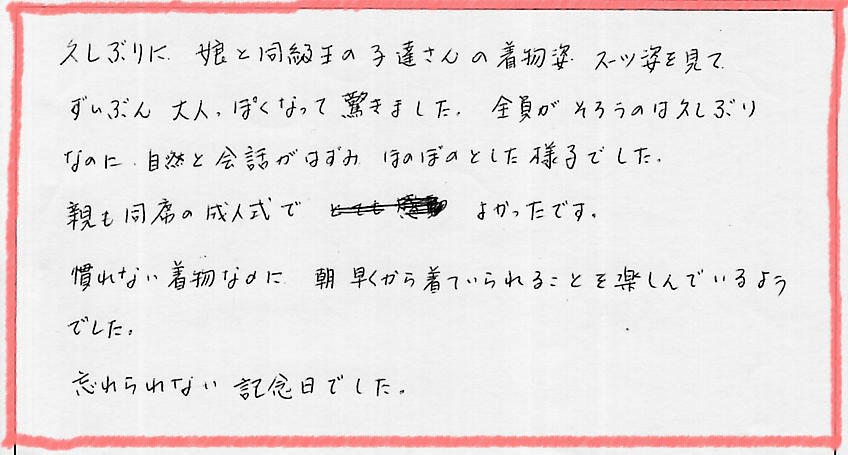 久しぶりに 娘と同級生の子達さんの着物姿 スーツ姿を見て
ずいぶん 大人っぽくなって驚きました。 全員がそろうのは久しぶり
なのに 自然と会話がはずみ ほのぼのとした様子でした。
親も同席の成人式で よかったです。
慣れない着物なのに 朝早くから着ていられることを楽しんでいるよう
でした。
忘れられない記念日でした。